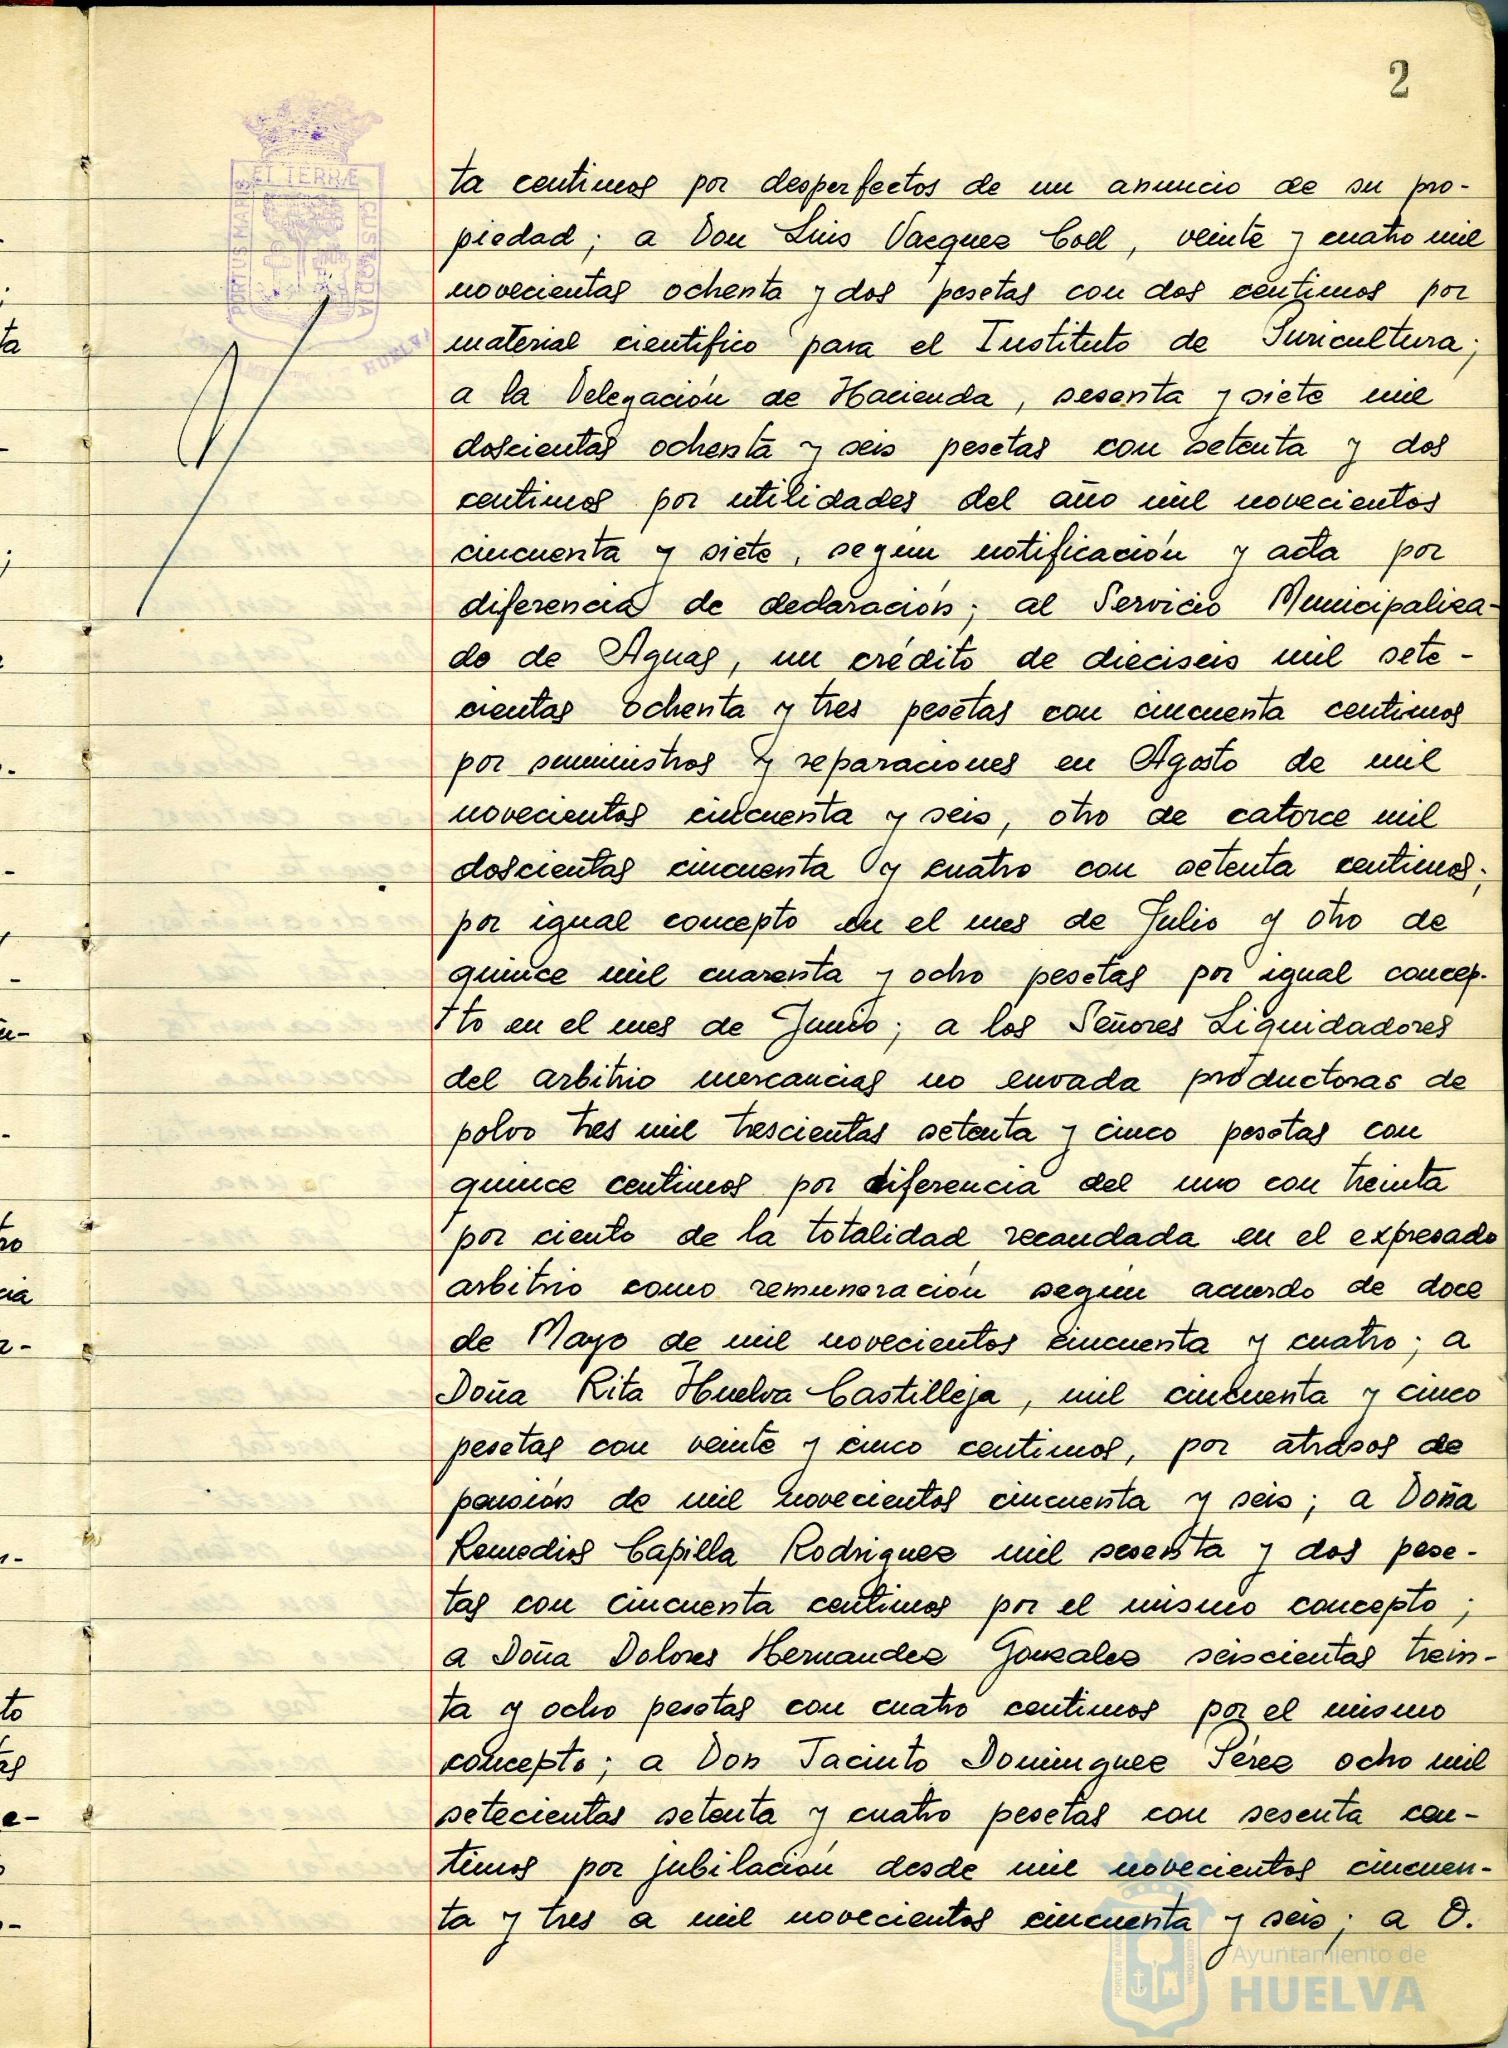 2
ET TERRÆ
PORTUS MARIS
CUSTODIA
HUELVA
ta centimos por desperfectos de un anuncio de su pro-
piedad; a Don Luis Vazquez Coll, veinte y cuatro mil
novecientas ochenta y dos pesetas con dos centimos por
material cientifico para el Instituto de Puricultura;
a la Delegación de Hacienda, sesenta y siete mil
doscientas ochenta y seis pesetas con setenta y dos
centimos por utilidades del año mil novecientos
cincuenta y siete, segun notificación y acta por
diferencia de declaración; al Servicio Municipaliza-
do de Aguas, un crédito de dieciseis mil sete-
cientas ochenta y tres pesetas con cincuenta centimos
por suministros y reparaciones en Agosto de mil
novecientos cincuenta y seis, otro de catorce mil
doscientas cincuenta y cuatro con setenta centimos;
por igual concepto en el mes de Julio y otro de
quince mil cuarenta y ocho pesetas por igual concep-
to en el mes de Junio; a los Señores Liquidadores
del arbitrio mercancias no envada productoras de
polvo tres mil trescientas setenta y cinco pesetas con
quince centimos por diferencia del uno con treinta
por ciento de la totalidad recaudada en el expresado
arbitrio como remuneración segun acuerdo de doce
de Mayo de mil novecientos cincuenta y cuatro; a
Doña Rita Huelva Castilleja, mil cincuenta y cinco
pesetas con veinte y cinco centimos, por atrasos de
pensión de mil novecientos cincuenta y seis; a Doña
Remedios Capilla Rodriguez mil sesenta y dos pese-
tas con cincuenta centimos por el mismo concepto;
a Doña Dolores Hernandez Gonzalez seiscientas trein-
ta y ocho pesetas con cuatro centimos por el mismo
concepto; a Don Jacinto Dominguez Pérez ocho mil
setecientas setenta y cuatro pesetas con sesenta cen-
timos por jubilación desde mil novecientos cincuen-
ta y tres a mil novecientos cincuenta y seis; a D.
Ayuntamiento de
HUELVA